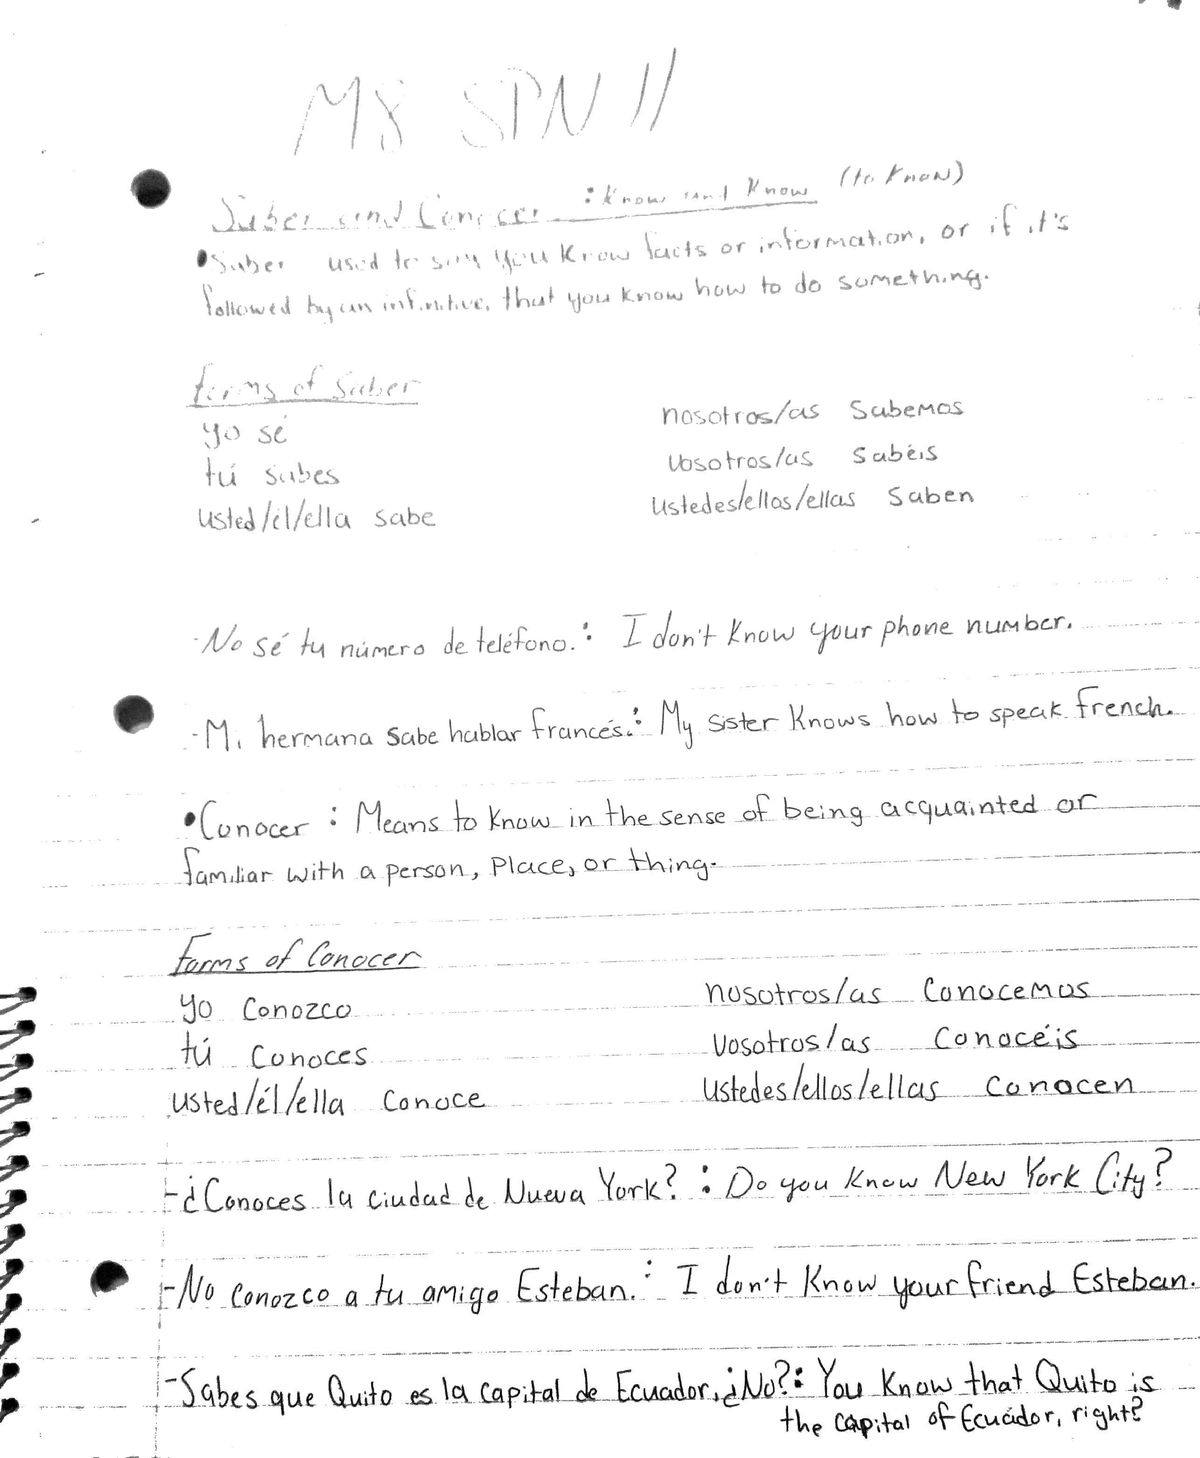 M8 SPN II
Saber and Conocer : Know and Know (to know)
•Saber used to say you know facts or information, or if it's
followed by an infinitive, that you know how to do something.
forms of Saber
yo sé nosotros/as sabemos
tú sabes vosotros/as sabéis
usted/él/ella sabe ustedes/ellos/ellas saben
-No sé tu número de teléfono.: I don't know your phone number.
-Mi hermana sabe hablar francés.: My sister knows how to speak french.
•Conocer : Means to know in the sense of being acquainted or
familiar with a person, place, or thing.
Forms of Conocer
yo conozco nosotros/as conocemos
tú conoces vosotros/as conocéis
usted/él/ella conoce ustedes/ellos/ellas conocen
-¿Conoces la ciudad de Nueva York? : Do you know New York City?
-No conozco a tu amigo Esteban. : I don't know your friend Esteban.
-Sabes que Quito es la capital de Ecuador, ¿No?: You know that Quito is
the capital of Ecuador, right?